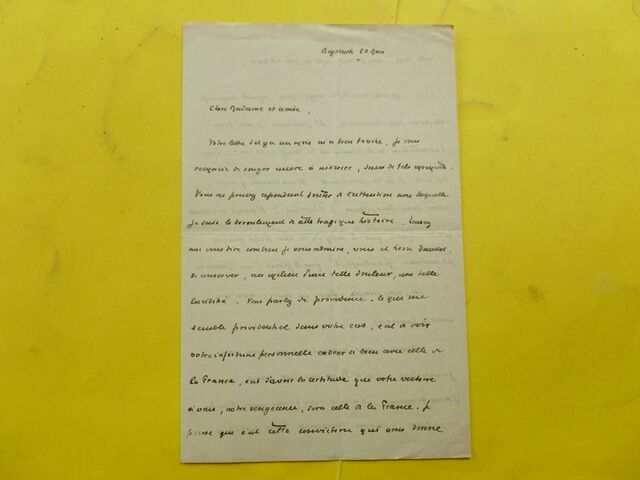 Beyrouth 20 Mai
Chère Madame et amie,
Votre lettre d'il y a un mois m'a bien touché. Je vous
remercie de songer encore à m'écrire, dans de tels moments.
Vous ne pouvez cependant douter de l'attention avec laquelle
je suis le déroulement de cette tragique histoire. Laissez
moi vous dire combien je vous admire, vous et
de conserver, au milieu d'une telle douleur, une telle
lucidité. Vous parlez de providence. Ce que me
semble providentiel dans votre cas, c'est de voir
votre infortune personnelle cadrer si bien avec celle de
la France, c'est d'avoir la certitude que votre victoire
à vous, votre vengeance, sera celle de la France. Je
pense que c'est cette conviction qui vous donne